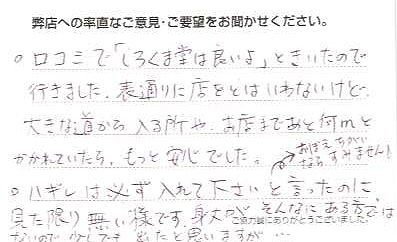 弊店への率直なご意見・ご要望をお聞かせください。
○口コミで「しろくま堂は良いよ」ときいたので
行きました。表通りに店をとはいわないけど
大きな道から入る所や、お店まであと何mと
かかれていたら、もっと安心でした。
→おぼえちがい
ならすみません!
○ハギレは必ず入れて下さいと言ったのに
見た限り無い様です。身丈がそんなにある方では
ご協力誠にありがとうございました。
ないので少しでも 出たと思いますが…